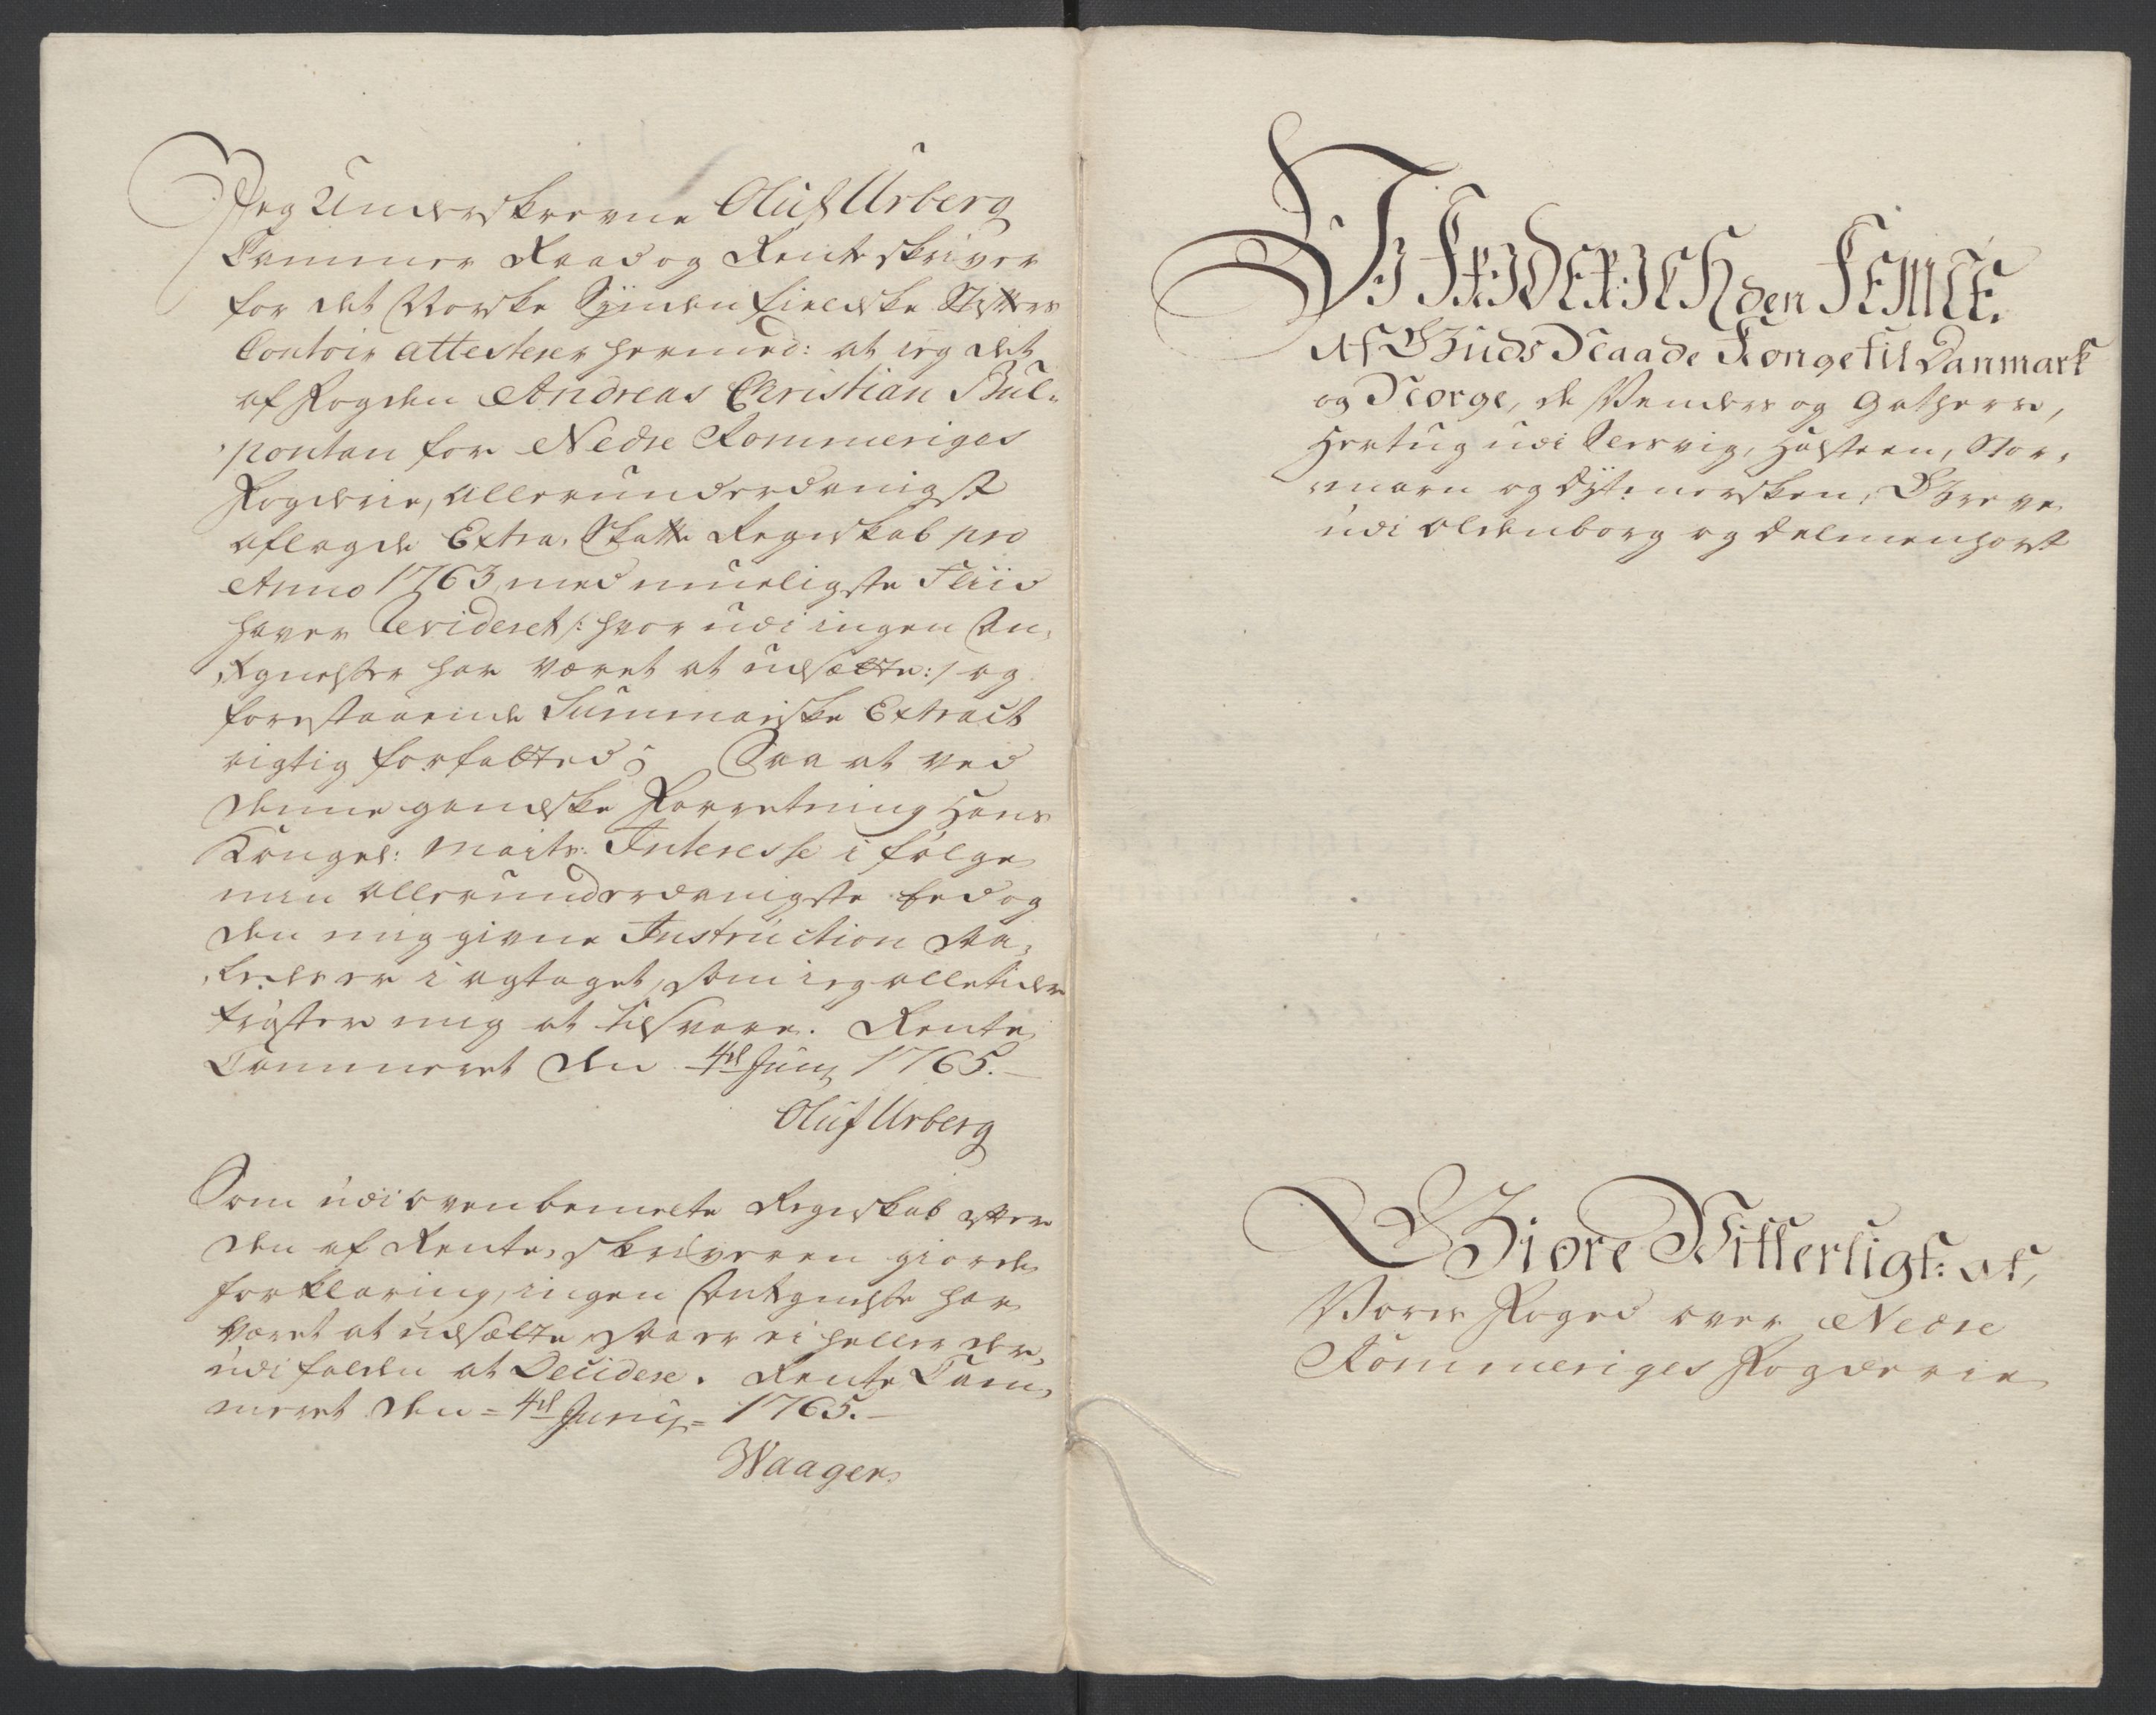 Jeg Underskrevne Oluf Urberg
Cammer Raad og Renteskriver
for det Norske Synden Fieldske Stifters
Contoir attesterer hermed: at ieg det
af Fogden Andreas Christian Bul-
pontan for Nedre Rommeriges
Fogderie, allerunderdanigst
aflagde Extra Skatte Regnskab pro
Anno 1763, med mueligste Fliid
haver Revideret /: hvor udi ingen An-
tegnelser har været at udsætte :/ og
forestaaende Summariske Extract
rigtig forfatted; Saa at ved
denne gandske Forretning Hans
Kongel: Maits: Interesse i følge
min allerunderdanigste Eed og
den mig givne Instruction saa-
ledes er i agtaget, som ieg alletider
trøster mig at tilsvare. Rente
Cammeret den 4de Junij 1765.
Oluf Urberg
Som udi ovenbemelte Regnskab efter
den af Rente-skriveren giorde
forklaring, ingen Antegnelse har
været at udsætte, saa er ei heller der-
udi falden at Decidere. Rente Cam-
meret den = 4de Junij = 1765.
Waager
VI FRIDERICH den FEMTE.
Af Guds Naade Konge til Danmark
og Norge, de Venders og Gothers,
Hertug udi Slesvig, Holsteen, Stor-
marn og Dytmersken, Greve
udi Oldenborg og Delmenhorst
Giøre Vitterligt: at,
Vores Foged over Nedre
Rommeriges Fogderie